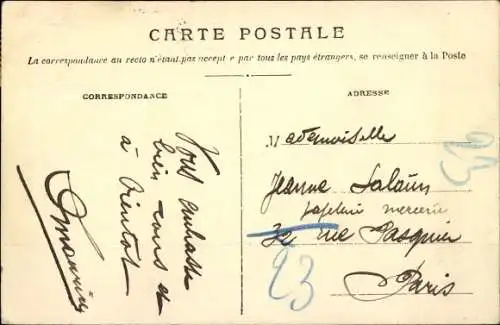 CARTE POSTALE
La correspondance au recto n'étant pas accepté e par tous les pays étrangers, se renseigner à la Poste
CORRESPONDANCE
ADRESSE
Vous embrasse
bien tous et
à bientôt
Mademoiselle
Jeanne Salaün
papeterie mercerie
32 rue Pasquier
Paris
23
23